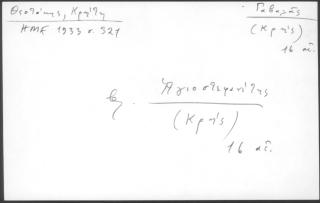 Θεοτόκης, Κρήτη
ΗΜΕ 1933 σ. 321
Γαβαλᾶς
(Κρής)
16 αἰ.
βλ. Ἁγιοστεφανίτης
(Κρής)
16 αἰ.